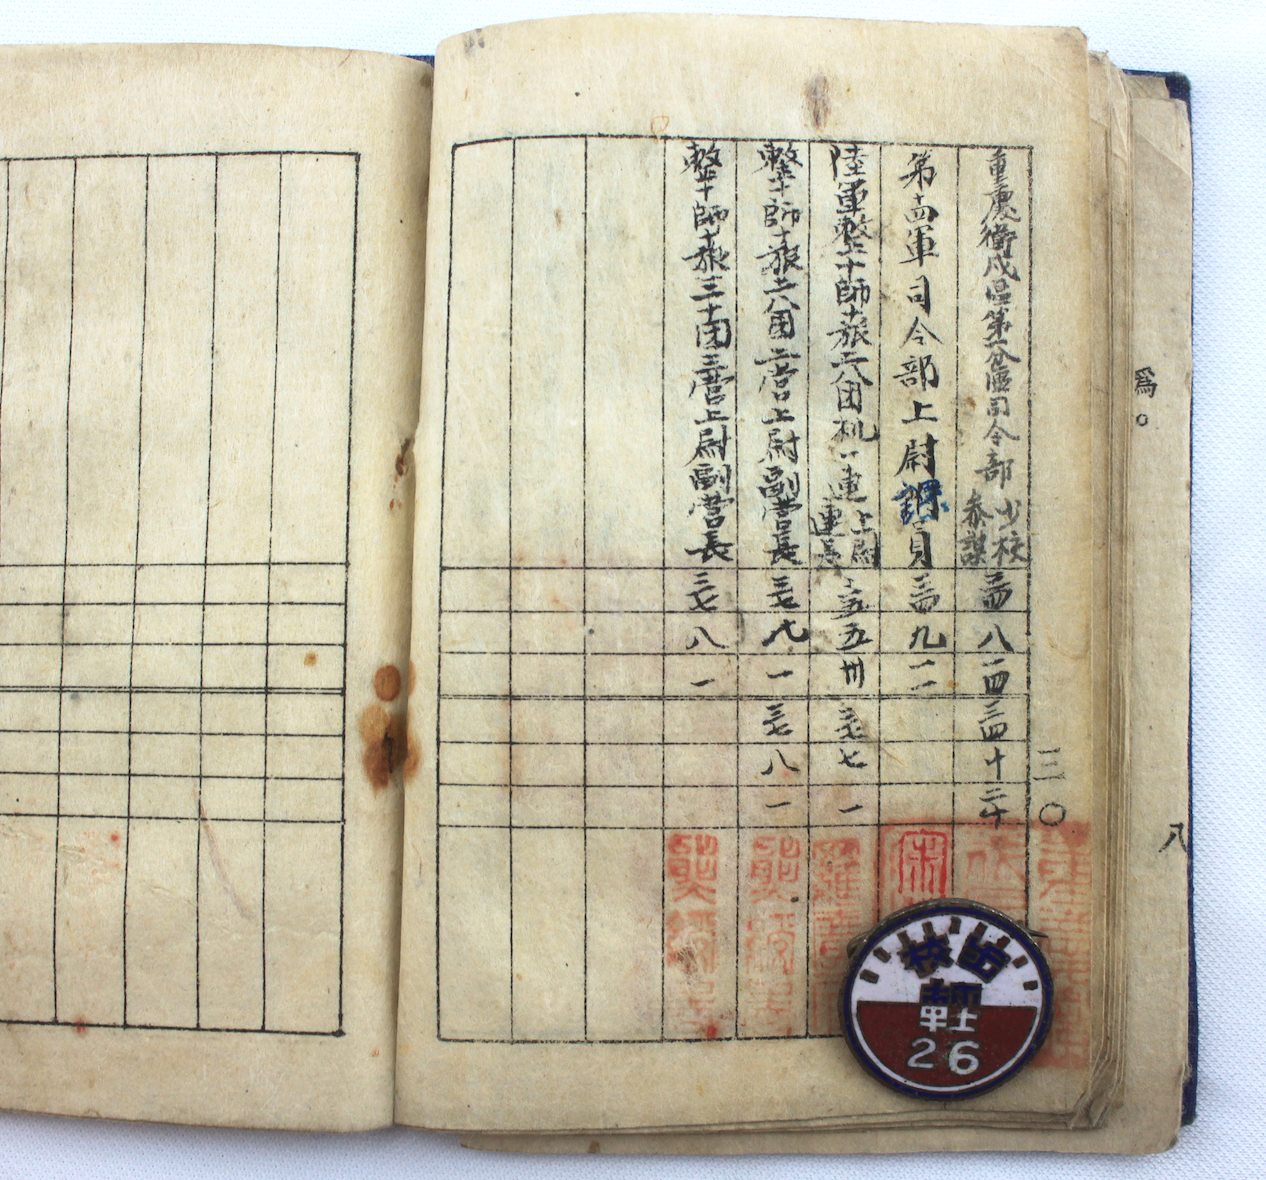 重慶衛戍區第一分區司令部少校參謀 三四 八 一四 三四 十 二十
第十四軍司令部上尉課員 三四 九 一一
陸軍整十師十旅二八团机一連上尉連長 三五 五 卅 三七 七 一
整十師十旅二八团二营上尉副营長 三七 九 一 三七 八 一
整十師十旅三十团三营上尉副营長 三七 八 一
三〇
爲。
八
宋
26